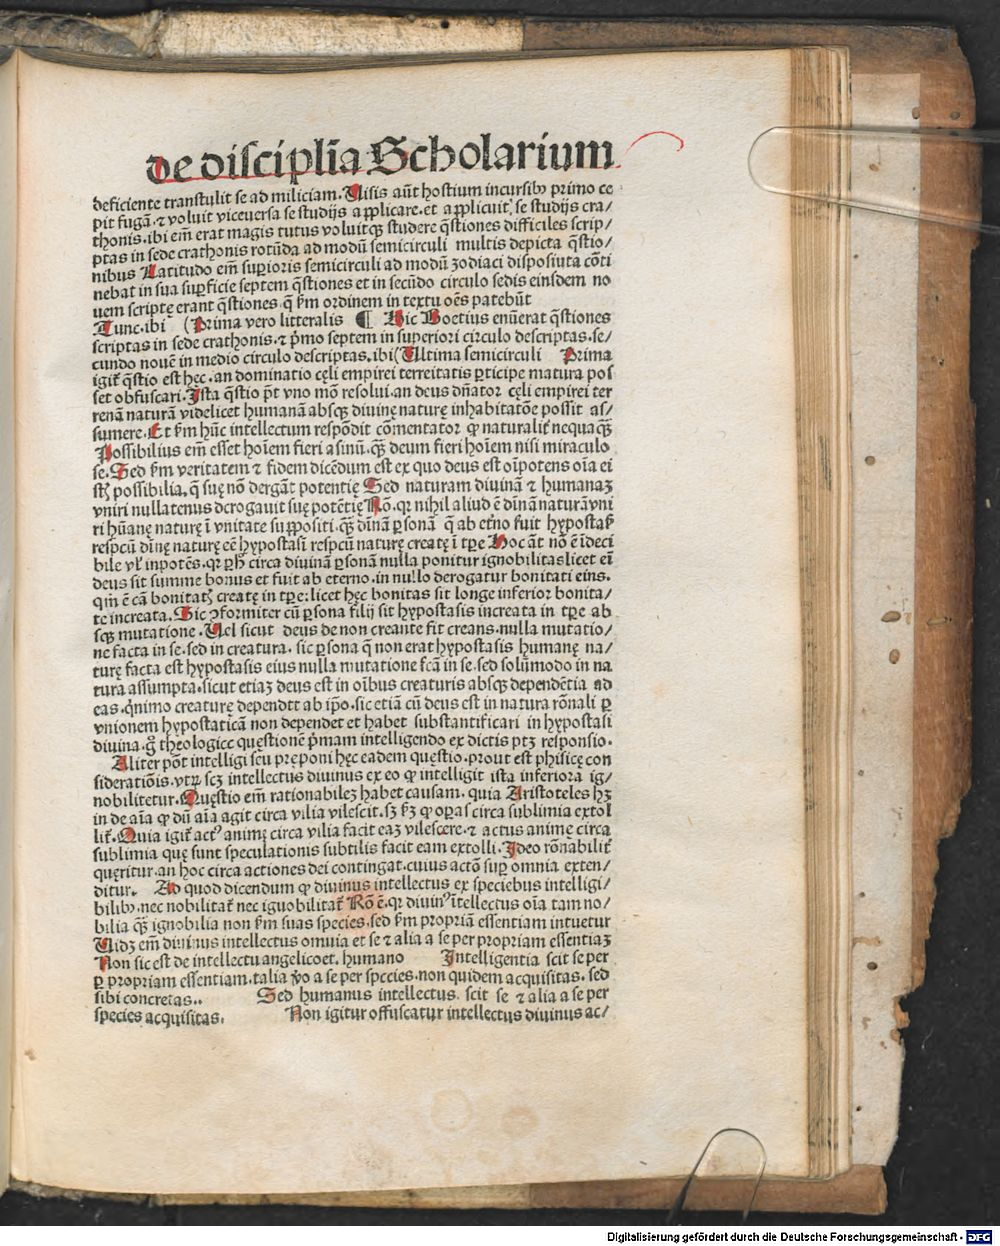 de disciplīa Scholarium
deficiente transtulit se ad miliciam. Uisis aūt hostium incursibꝰ primo ce
pit fugā. ⁊ voluit viceversa se studijs applicare. et applicuit se studijs cra/
thonis. ibi em̄ erat magis tutus voluitqꝫ studere q̄stiones difficiles scrip/
ptas in sede crathonis rotūda ad modū semicirculi multis depicta q̄stio/
nibus Latitudo em̄ suꝑioris semicirculi ad modū zodiaci disposiuta cōti
nebat in sua suꝑficie septem q̄stiones et in secūdo circulo sedis eiusdem no
uem scripte erant q̄stiones q̄ ẜm ordinem in textu oēs patebūt
Tunc.ibi (Prima vero litteralis ¶ Hic Boetius enūerat q̄stiones
scriptas in sede crathonis. ⁊ p̄mo septem in superiori circulo descriptas. se/
cundo nouē in medio circulo descriptas. ibi (Ultima semicirculi Prima
igit̄ q̄stio est hęc. an dominatio cęli empirei terreitatis ꝑticipe matura pos
set obfuscari. Ista q̄stio pōt vno mō resolui. an deus dn̄ator cęli empirei ter
renā naturā videlicet humanā absqꝫ diuinę naturę inhabitatōe possit as/
sumere. Et ẜm hūc intellectum respōdit cōmentator ꝙ naturalit̄ nequaqꝫ
Possibilius em̄ esset hoīem fieri asinū. qꝫ deum fieri hoīem nisi miraculo
se. Sed ẜm veritatem ⁊ fidem dicēdum est ex quo deus est oīpotens oīa ei
possibilia. q̄ suę nō dergāt potentię Sed naturam diuinā ⁊ humanaꝫ
vniri nullatenus derogauit suę potētię Rō. qꝛ nihil aliud ē dīnā naturā vni
ri hūanę naturę ī vnitate suppositi. qꝫ dīnā ꝑsonā q̄ ab et̄no fuit hypostas̄
respcū dīnę naturę eē hypostasī respcū naturę creatę ī tꝑe Hoc āt nō ē īdeci
bile vl̄ inpotēs. qꝛ circa diuinā ꝑsonā nulla ponitur ignobilitas licet eī
deus sit summe bonus et fuit ab eterno. in nullo derogatur bonitati eius.
qm̄ ē cā bonitatꝭ creatę in tꝑe: licet hęc bonitas sit longe inferior bonita/
te increata. Sic ꝯformiter cū ꝑsona filij sit hypostasis increata in tꝑe ab
sqꝫ mutatione. Uel sicut deus de non creante fit creans. nulla mutatio/
ne facta in se. sed in creatura. sic ꝑsona q̄ non erat hypostasis humanę na/
turę facta est hypostasis eius nulla mutatione fcā in se. sed solūmodo in na
tura assumpta. sicut etiaꝫ deus est in oībus creaturis absqꝫ dependētia ad
eas. qnimo creaturę dependēt ab ip̄o. sic etiā cū deus est in natura rōnali ꝑ
vnionem hypostaticā non dependet et habet substantificari in hypostasi
diuina. g̊ theologice questionē p̄mam intelligendo ex dictis ptꝫ responsio.
Aliter pōt intelligi seu pręponi hęc eadem quęstio. prout est phisicę con
siderationis. vtꝝ scꝫ intellectus diuinus ex eo ꝙ intelligit ista inferiora ig/
nobilitetur. Quęstio em̄ rationabileꝫ habet causam. quia Aristoteles hꝫ
in de aīa ꝙ dū aīa agit circa vilia vilescit. sꝫ ꝙ oꝑas circa sublimia extol
lit̄. Quia igit̄ actꝰ animę circa vilia facit eaꝫ vilescere. ⁊ actus animę circa
sublimia quę sunt speculationis subtilis facit eam extolli. Ideo rōnabilit̄
quęritur. an hoc circa actiones dei contingat. cuius actō suꝑ omnia exten/
ditur. Ad quod dicendum ꝙ diuinus intellectus ex speciebus intelligi/
bilibꝰ. nec nobilitat̄ nec ignobilitat̄ Rō ē. qꝛ diuinꝰ ītellectus oīa tam no/
bilia qꝫ ignobilia non ẜm suas species. sed ẜm propriā essentiam intuetur
Uidꝫ em̄ diuinus intellectus omnia et se ⁊ alia a se per propriam essentiaꝫ
Non sic est de intellectu angelico et. humano Intelligentia scit se per
ꝑ propriam essentiam. talia ꝟo a se per species. non quidem acquisitas. sed
sibi concretas.. Sed humanus intellectus. scit se ⁊ alia a se per
species acquisitas. Non igitur offuscatur intellectus diuinus ac/
Digitalisierung gefördert durch die Deutsche Forschungsgemeinschaft - DFG